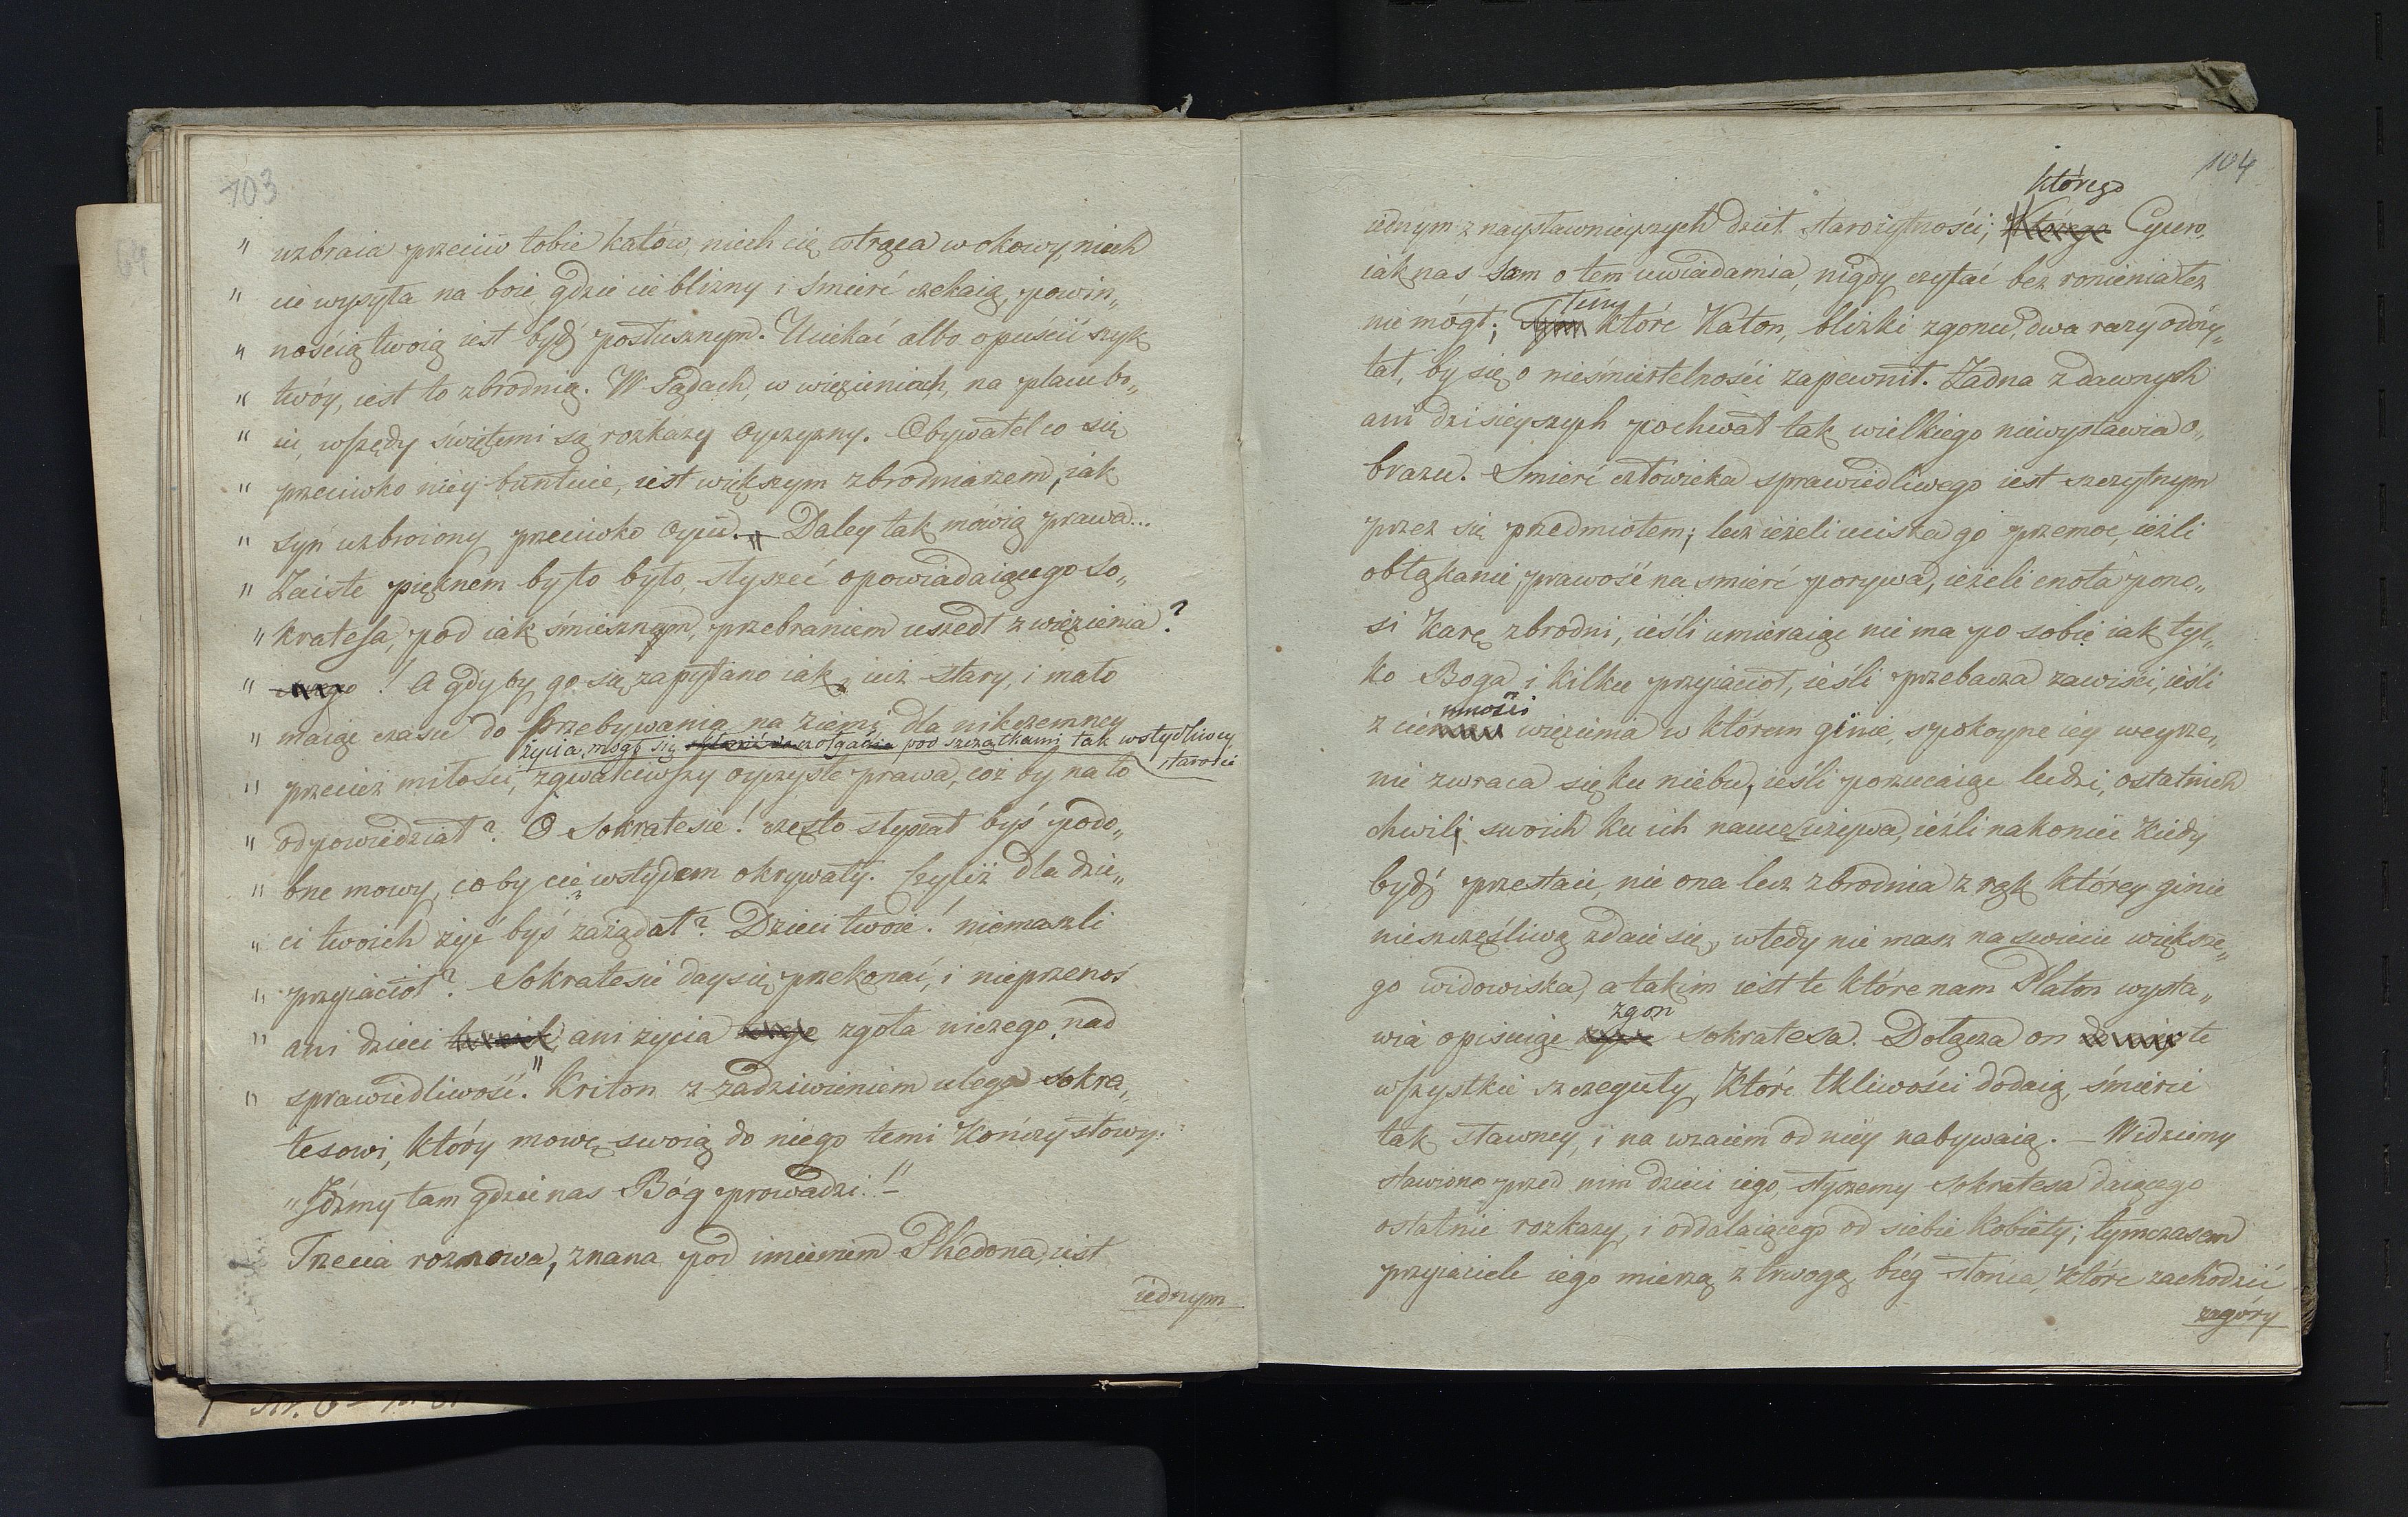 703
" uzbraia przeciw tobie katów, niech cię wtrąca w okowy, niech
" cie wysyła na boie, gdzie cie blizny i śmierć czekaią, powin„
" nością twoią iest bydź posłusznym. Uciekać albo opuścić szyk
" twóy, iest to zbrodnią. W Sądach, w więzieniach, na placu bo„
" iu, wszędy świętemi są rozkazy oyczyzny. Obywatel co się
" przeciwko niey buntuie, iest większym zbrodniarzem, iak
" syn uzbroiony przeciwko oycu. „ Daley tak mówią prawa...
" Zaiste pięknem by to było, słyszeć opowiadaiącego So„
" kratesa, pod iak śmiesznym, przebraniem uszedł z więzienia?
" ! A gdyby go się zapytano iak, iuż stary, i mało
" maiąc czasu do przebywania na ziemi, dla nikczemney
życia, mógł się pod szczątkami tak wstydliwey
starości
" przecież miłości, zgwałciwszy oyczyste prawa, cóż by na to
" odpowiedział? O Sokratesie! często słyszał byś podo„
" bne mowy, coby cie wstydem okrywały. Czyliż dla dzie„
" ci twoich żyć byś zażądał? Dzieci twoie! niemaszli
" przyiaciół? Sokratesie day się przekonać, i nieprzenoś
" ani dzieci ani życia zgoła niczego nad
" sprawiedliwość." Kriton z zadziwieniem ulega Sokra„
tesowi, który mowę swoią do niego temi kończy słowy:
"Idźmy tam gdzie nas Bóg prowadzi!" –
Trzecia rozmowa, znana pod imieniem Phedona, iest
iednym
104
którego
iednym z naysławnieyszych dzieł starożytności; Cycero,
iak nas sam o tem uwiadamia, nigdy czytać bez ronienia łez
nie mógł; które Katon, blizki zgonu, dwa razy odczy„
tał, by się o nieśmiertelności zapewnił. Żadna z dawnych
ani dzisieyszych pochwał tak wielkiego niewystawia o„
brazu. Śmierć człowieka sprawiedliwego iest szczytnym
przez się przedmiotem; lecz ieżeli uciska go przemoc, ieżli
obłąkanie, prawość na śmierć porywa, ieżeli cnota pono„
si karę zbrodni, ieśli umieraiąc nie ma po sobie iak tyl„
ko Boga i kilku przyiaciół, ieśli przebacza zawiści, ieśli
mności
z cie więzienia w którem ginie, spokoyne iey weyrze„
nie zwraca się ku niebu, ieśli porzucaiąc ludzi, ostatnich
chwili swoich ku ich nauce używa, ieżli nakoniec kiedy
bydź przestaie, nie ona lecz zbrodnia z rąk którey ginie
nieszczęśliwą zdaie się, wtedy nie masz na świecie większe„
go widowiska, a takim iest te które nam Platon wysta„
zgon
wia opisuiąc Sokratesa. Dołącza on te
wszystkie szczeguły, które tkliwości dodaią, śmierci
tak sławney, i na wzaiem od niey nabywaią. – Widziemy
stawione przed nim dzieci iego, słyszemy Sokratesa daiącego
ostatnie rozkazy, i oddalaiącego od siebie kobiety; tymczasem
przyiaciele iego mierzą z trwogą bieg słońca, które zachodzić
zagóry